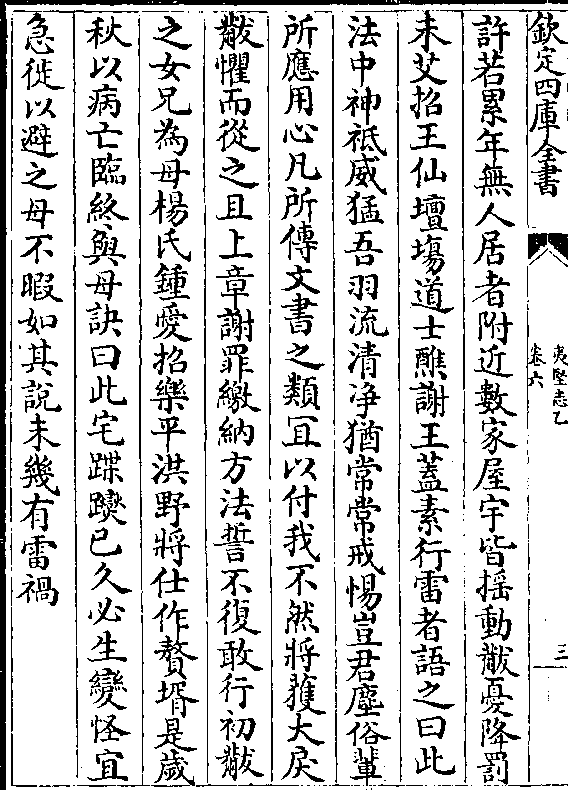 欽定四庫全書
夷堅志乙
卷六
三
許若累年無人居者附近數家屋宇皆搖動黻憂降罰
未艾招王仙壇塲道士醮謝王蓋素行雷者語之曰此
法中神祗威猛吾羽流清净猶常常戒惕豈君塵俗輩
所應用心凡所傳文書之類冝以付我不然將獲大戾
黻懼而從之且上章謝罪繳納方法誓不復敢行初黻
之女兄為母楊氏鍾愛招樂平洪野將仕作贅壻是歲
秋以病亡臨終與母訣曰此宅蹀躞已久必生變怪宜
急徙以避之母不暇如其說未幾有雷禍